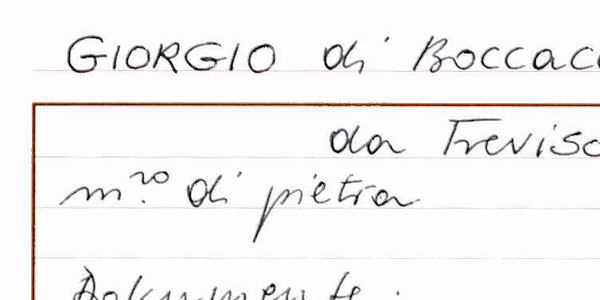 GIORGIO di Boccac
da Treviso
m.ro di pietra
Dokumente: